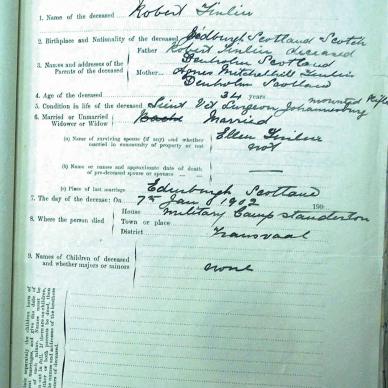 1. Name of the deceased Robert Tinlin
2. Birthplace and Nationality of the deceased Jedburgh Scotland Scotch
3. Names and addresses of the Parents of the deceased
Father Robert Tinlin deceased
Denholm Scotland
Mother Agnes Mitchelhill Tinlin
Denholm Scotland
4. Age of the deceased 34 years
5. Condition in life of the deceased Lieut Vet Surgeon Johannesburg mounted Rifles
6. Married or Unmarried Widower or Widow Married
(a) Name of surviving spouse (if any) and whether married in community of property or not Ellen Tinlin
not
(b) Name or names and approximate date of death of pre-deceased spouse or spouses —
(c) Place of last marriage Edinburgh Scotland
7. The day of the decease: On 7th Jany 1902 190
8. Where the person died
House Military Camp Standerton
Town or place
District Transvaal
9. Names of Children of deceased and whether majors or minors
none